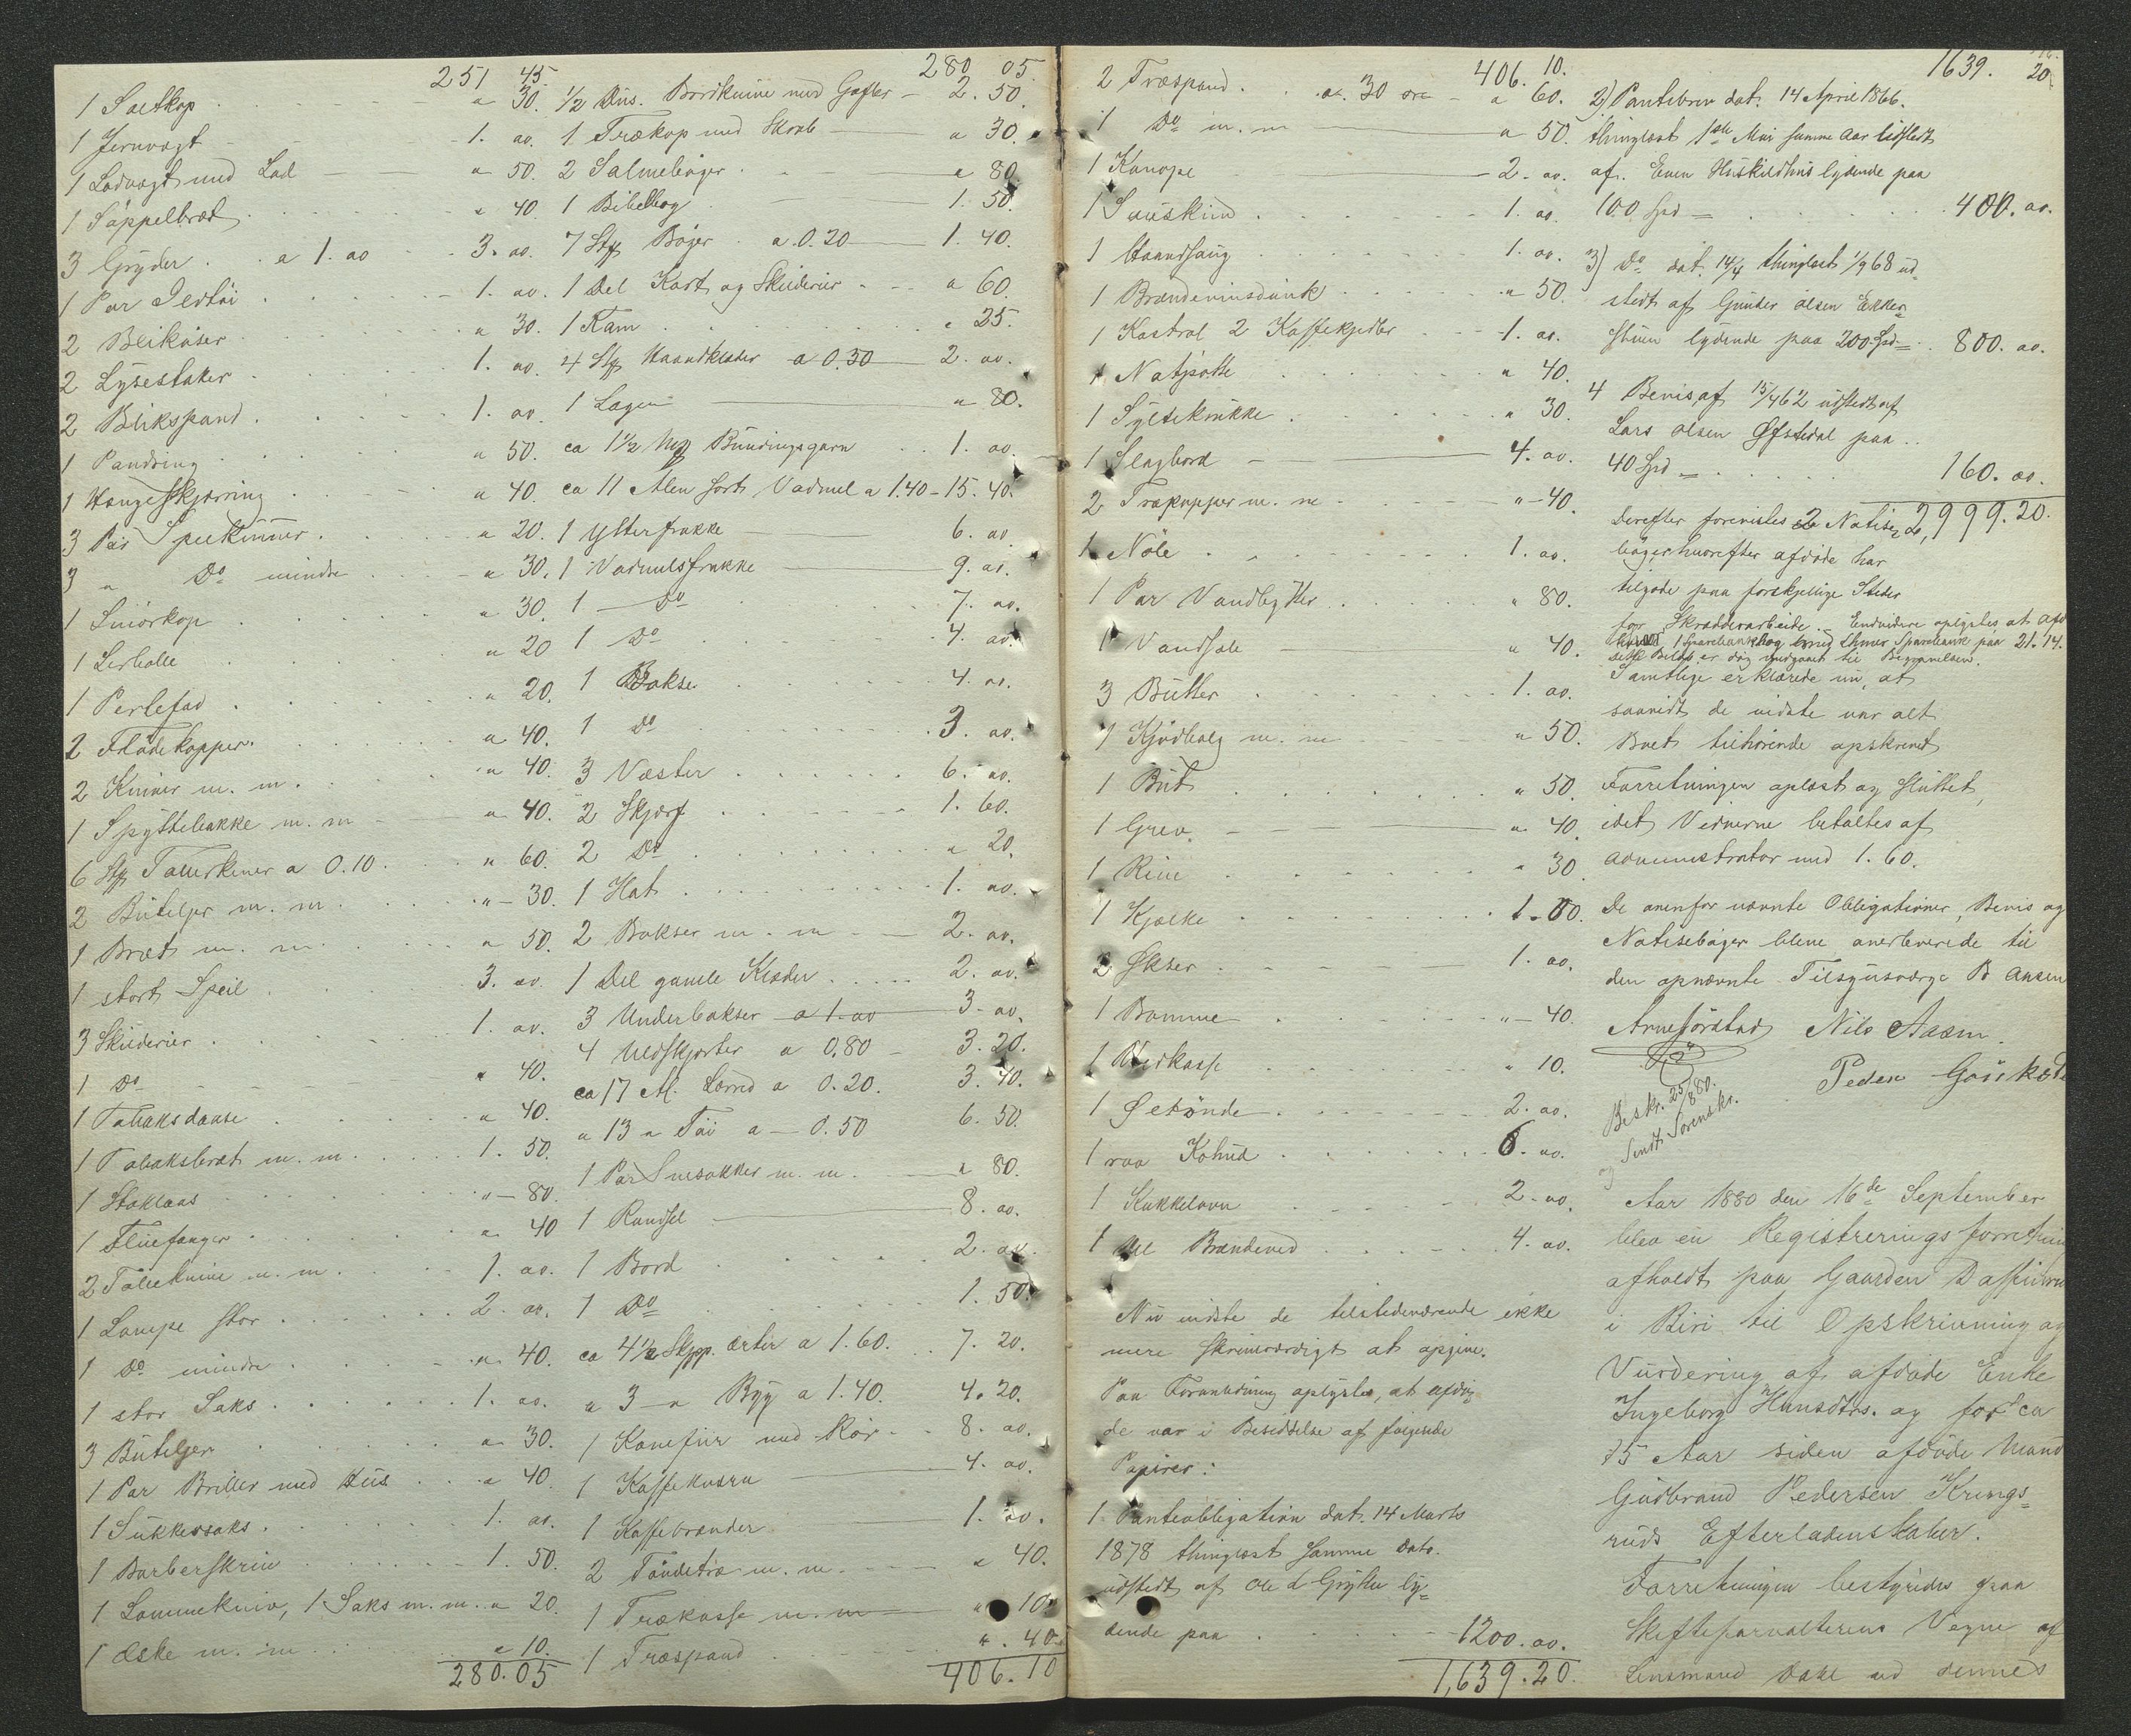 251 45.
1 Saltkop " 30.
1 Jernvogt 1. oo.
1 Lodvogt med Lod " 50.
1 Sáppelbræt " 40.
3 Gryder a 1. oo 3. oo.
1 Par Ildtöi 1. oo.
2 Blikaiser " 30.
2 Lysestaker 1. oo.
2 Blikspand 1. oo.
1 Pandring " 50.
1 Hængeskjærring " 40.
3 Par " 20.
3 " Do mindre " 30.
1 Smörkop " 30.
1 Lerbolle " 20
1 Perlefad " 20.
2 Flödekopper " 40.
2 Kniver m. m. " 40.
1 Spyttebakke m. m " 40.
6 Stk Tallerkener a 0.10. " 60.
2 Buteljer m. m. " 30.
1 Bræt m. m. " 50.
1 stort Speil 3. oo.
3 Skilderier 1. oo.
1 Do " 40.
1 Tobaksdaase " 40.
1 Tobaksbræt m. m. 1. 50.
1 Stoklaas " 80.
1 Fluefanger " 40
2 Tælleknive m. m. 1. oo.
1 Lampe stor 2. oo.
1 Do mindre " 40.
1 stor Saks 1. oo.
3 Buteljer " 30.
1 Par Briller med Hus " 40.
1 Sukkersaks 1. oo.
1 Barberskrin 1. 50.
1 Lommekniv, 1 Saks m. m. " 20.
1 Æske m. m " 10.
280.05
280 05.
1/2 Dus. Bordknive med Gafler 2. 50.
1 Trækop med Skrab " 30.
2 Salmebøger " 80.
1 Bibelbog 1. 50.
7 Stk Bøger a 0.20 1. 40.
1 Del Kort og Skilderier " 60.
1 Kam " 25.
4 Stk Haandklæder a 0.50 2. oo.
1 Lagen " 80.
ca 1 1/2 Mk Bundingsgarn 1. oo.
ca 11 Alen sort Vadmel a 1.40 - 15. 40.
1 Ytterfrakke 6. oo.
1 Vadmelsfrakke 9. oo.
1 Do 7. oo.
1 Do 4. oo.
1 Bukse 4. oo.
1 Do 3. oo.
3 Vester 6. oo.
2 Skjærf 1. 60.
2 Do " 20.
1 Hat 1. oo.
2 Bukser m. m 2. oo.
1 Del gamle Klæder 2. oo.
3 Underbukser a 1. oo 3. oo.
4 Uldskjorter a 0.80 3. 20.
ca 17 Al. Lærred a 0.20. 3. 40.
" 13 " Töi a 0.50 6. 50.
1 Par Snesokker m. m. " 80.
1 Randsel 8. oo.
1 Bord 2. oo.
1 Do 1. 50.
ca 4 1/2 Skpp. Ærter a 1.60. 7. 20.
" 3 " Byg a 1.40. 4. 20.
1 Konefur med Rör 8. oo.
1 Kaffekværn 4. oo.
1 Kaffebrænder 1. oo.
2 Töndetræ m. m. " 40.
1 Trækasse m. m " 10.
1 Træspand " 40
406. 10
406. 10.
2 Træspand a. 30 øre " 60.
1 Do m. m " 50.
1 Kanape 2. oo.
1 Saueskind 1. oo.
1 Haandsaug 1. oo.
1 Brændevinsdunk " 50.
1 Kastrol 2 Kaffekjedler 1. oo.
1 Natpotte " 40.
1 Syltekrukke " 30.
1 Slagbord 4. oo.
2 Trækopper m. m " 40.
1 Nöle 1. oo.
1 Par Vandbøtter " 80.
1 Vandsale " 40.
3 Butter 1. oo.
1 Kjödbalg m. m " 50.
1 But " 50.
1 Grev " 40.
1 Rive " 30.
1 Kjælke 1. 00.
2 Økser 1. oo.
1 Bomme " 40.
1 Vedkasse " 10.
1 Øltönde 2. oo.
1 raa Kohud 6. oo.
1 Kakkelovn 2. oo.
1 Del Brændeved 4. oo.
Nu vidste de tilstedeværende ikke
mere skriveværdigt at opgive.
Paa Foranledning oplystes, at afdø-
de var i Besiddelse af følgende
Papirer:
1. Panteobligation dat. 14 Marts
1878 thinglæst samme Dato.
udstedt af Ole L Grytten ly-
dende paa 1200. oo.
1,639.20.
1639. 20
2) Pantebrev dat. 14 April 1866.
thinglæst 1ste Mai samme Aar udstedt
af. Even Huskildhus lydende paa
100 Spd = 400. oo.
3) Do dat. 14/4 thinglæst 1/9 68 ud-
stedt af Gunder Olsen Ekker-
stuen lydende paa 200 Spd = 800. oo.
4 Bevis af 15/4 62 udstedt af
Lars Olsen Øfstedal paa
40 Spd = 160. oo.
2,999.20.
Derefter forevistes 2 Notise-
bøger, hvorefter afdøde har
tilgode paa forskjellige Steder
for Skrædderarbeide. Endvidere oplystes at afd
havde 1 Sparebankbog med Sparebank paa 21.14.
dette Beløb er dog medgaaet til Begravelsen.
Samtlige erklærede nu, at
saavidt de vidste var alt
Boet tilhørende opskrevet
Forretningen oplæst og sluttet,
idet Vidnerne betaltes af
administrator med 1.60.
De ovenfor nævnte Obligationer, Bevis og
Notisebøger bleve overleverede til
den opnævnte Tilsynsværge B Aasen
Arne Jørstad Nils Aasen.
Peder
Beskr. 25/8 80.
og Sendt Sorenskr.
Aar 1880 den 16de September
blev en Registreringsforretning
afholdt paa Gaarden
i Biri til Opskrivning og
Vurdering af afdøde Enke
Ingeborg Hansdtrs. og for ca
15 Aar siden afdøde Mand
Gudbrand Pedersen Krings-
ruds Efterladenskaber.
Forretningen bestyredes paa
Skifteforvalterens Vegne af
Lensmand Dahl ved dennes